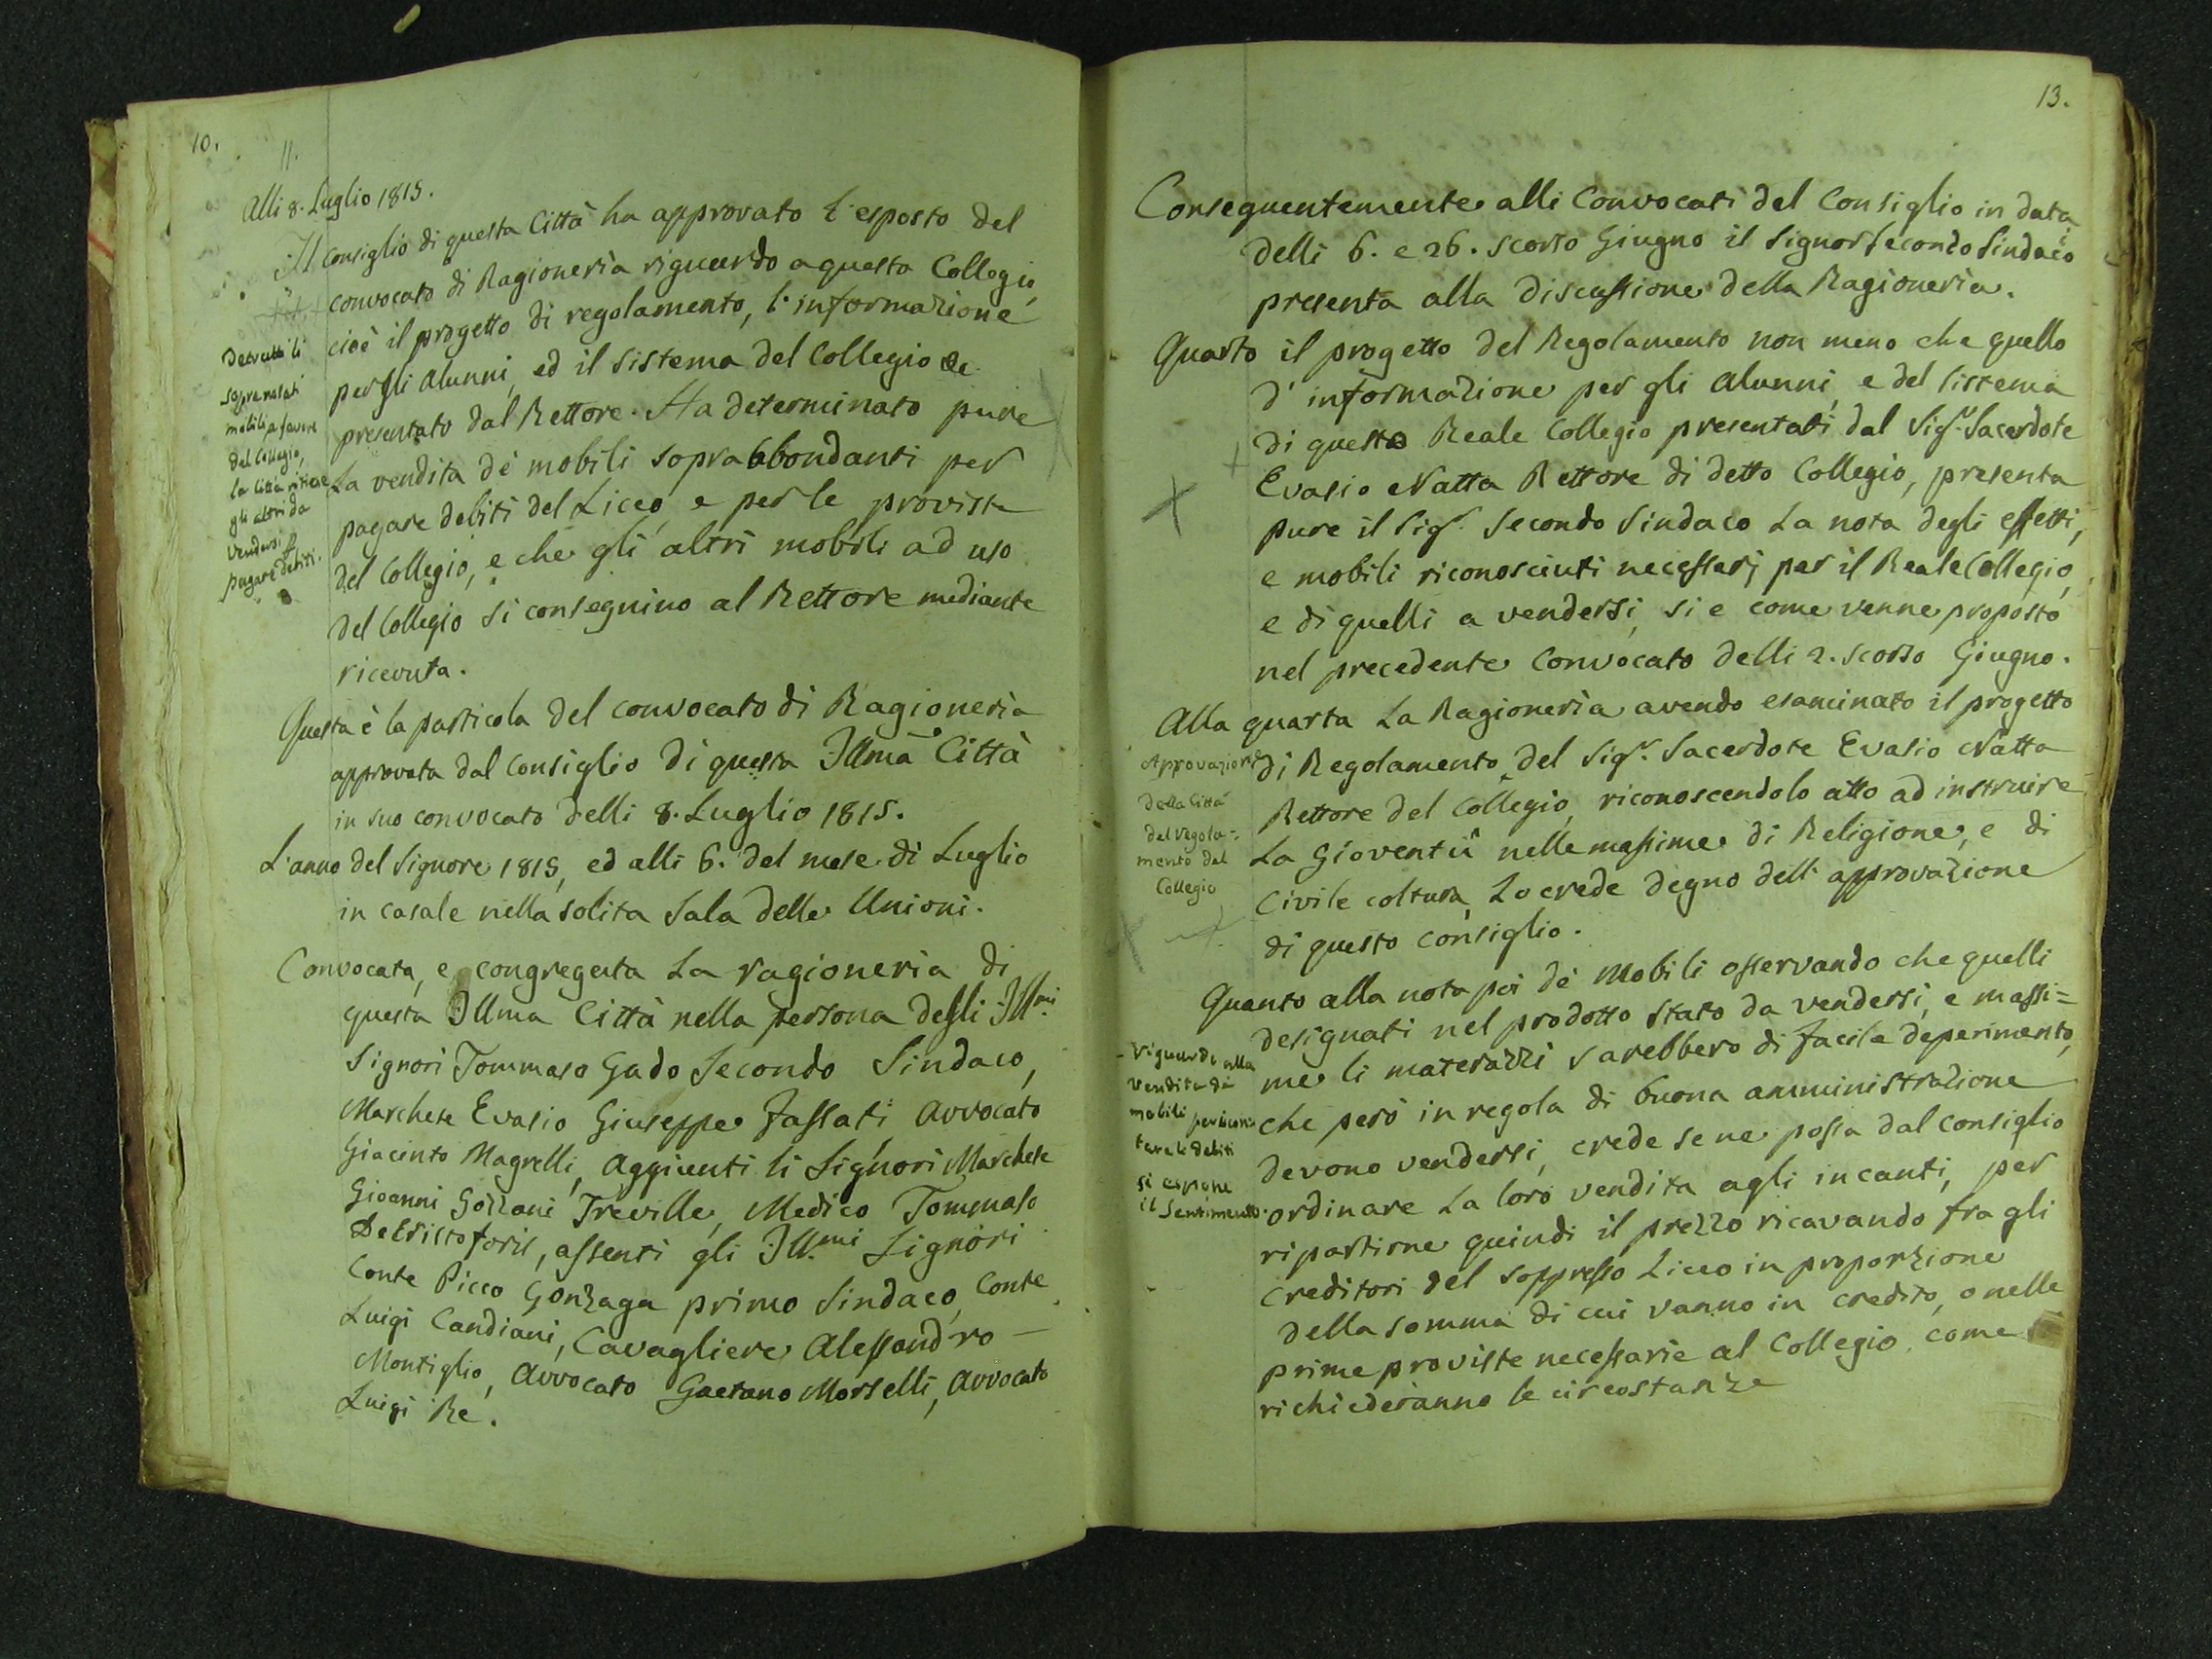 10.
11.
Alli 8. Luglio 1815.
Il Consiglio di questa Città ha approvato l'esposto del
convocato di Ragioneria riguardo a questo Collegio,
cioè il progetto di regolamento, l'informazione
per gli Alunni, ed il sistema del Collegio
presentato dal Rettore. Ha determinato pure
La vendita de' mobili soprabbondanti per
pagare debiti del Liceo, e per le proviste
del Collegio, e che gli altri mobili ad uso
del Collegio si consegnino al Rettore mediante
ricevuta.
mobili a favore
del Collegio,
la Città ritiene
gli altri da
vendersi
pagare debiti.
Questa è la particola del convocato di Ragioneria
approvata dal Consiglio di questa Illma Città
in suo convocato delli 8. Luglio 1815.
L'anno del Signore 1815, ed alli 6. del mese di Luglio
in casale nella solita Sala delle Unioni.
Convocata, e congregata La ragioneria di
questa Illma Città nella persona degli Ill.mi
Signori Tommaso Gado Secondo Sindaco,
Marchese Evasio Giuseppe Fassati Avvocato
Giacinto Magrelli, Aggiunti li Signori Marchese
Gioanni Gozzani Treville, Medico Tommaso
DeCristoforis, assenti gli Ill.mi Signori
Conte Picco Gonzaga primo Sindaco, Conte
Luigi Candiani, Cavagliere Alessandro
Montiglio, Avvocato Gaetano Morselli, Avvocato
Luigi Re.
13.
Conseguentemente alli Convocati del Consiglio in data
delli 6. e 26. scorso Giugno il Signor Secondo Sindaco
presenta alla Discussione della Ragioneria.
Quarto il progetto del Regolamento non meno che quello
d'informazione per gli Alunni, e del sistema
di questo Reale Collegio presentati dal Sigr. Sacerdote
Evasio Natta Rettore di detto Collegio, presenta
pure il Sigr. Secondo Sindaco La nota degli effetti,
e mobili riconosciuti necessarj per il Reale Collegio,
e di quelli a vendersi, si e come venne proposto
nel precedente Convocato delli 2. scorso Giugno.
Alla quarta La Ragioneria avendo esaminato il progetto
di Regolamento del Sigr. Sacerdote Evasio Natta
Rettore del Collegio, riconoscendolo atto ad instruire
La Gioventù nelle massime di Religione, e di
Civile coltura, Lo crede degno dell'approvazione
di questo Consiglio.
Approvazione
della Città
del regola=
mento del
Collegio
Quanto alla nota poi de' Mobili osservando che quelli
designati nel prodotto stato da vendersi, e massi=
me li materazzi sarebbero di facile deperimento,
che però in regola di buona amministrazione
devono vendersi, crede se ne possa dal Consiglio
ordinare La loro vendita agli incanti, per
ripartirne quindi il prezzo ricavando fra gli
Creditori del soppresso Liceo in proporzione
della somma di cui vanno in credito, o nelle
prime proviste necessarie al Collegio, come
richiederanno le circostanze
riguardo alla
vendita de'
mobili
debiti
si espone
il Sentimento.